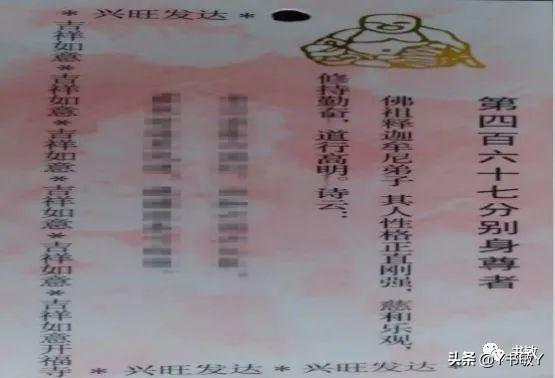 * 兴旺发达 *
第四百六十七分别身尊者
佛祖释迦牟尼弟子,其人性格正直刚强、慈和乐观,
修持勤奋,道行高明。诗云:
吉祥如意*吉祥如意*吉祥如意*吉祥如意*吉祥如意*吉祥如意开福寺
* 兴旺发达 * 兴旺发达 *
书敏
头条 @Y书敏Y